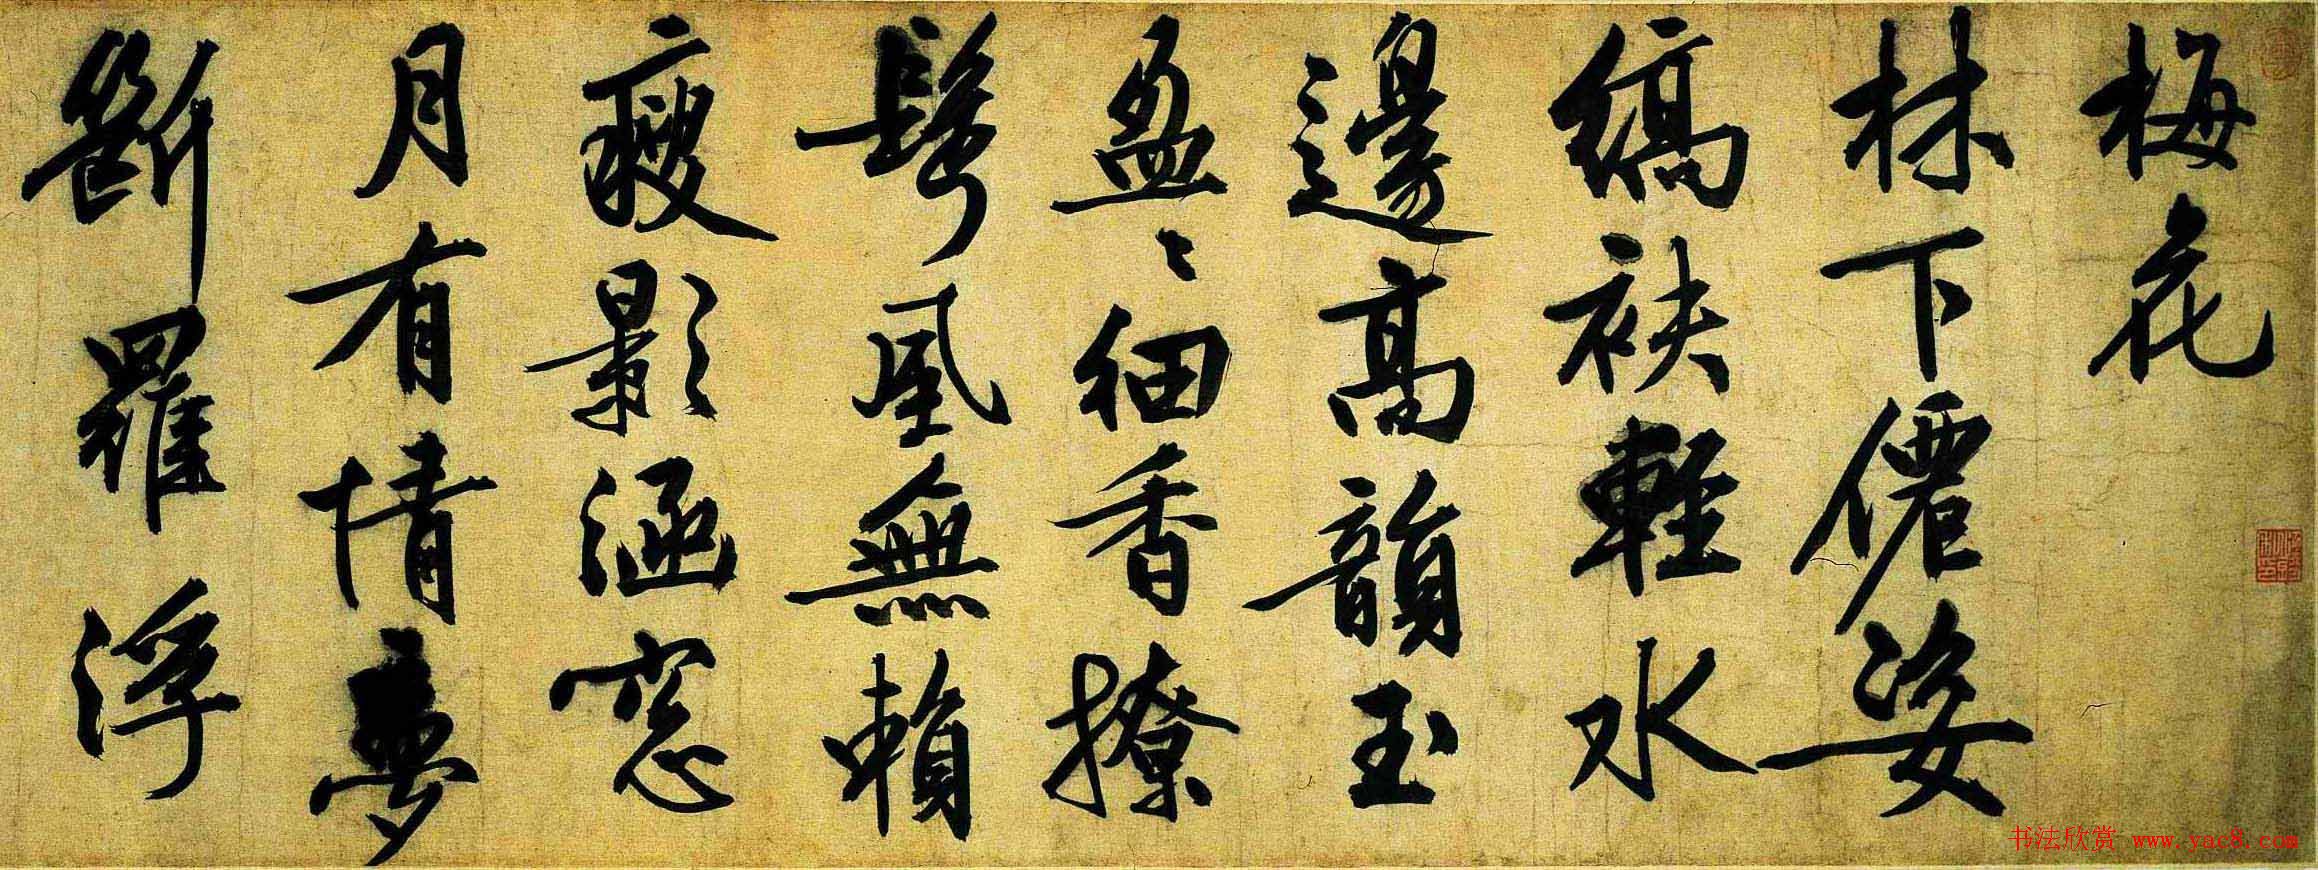 梅花
林下僊姿
縞袂輕水
邊高韻玉
盈〻細香撩
鬢風無賴
瘦影涵窓
月有情夢
斷羅浮
书法欣赏 www.yac8.com